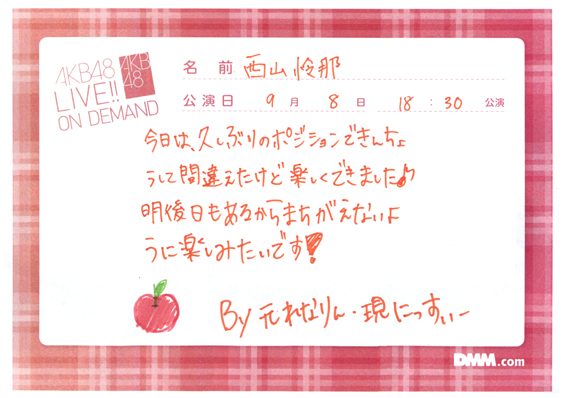 AKB48
LIVE!!
ON DEMAND
AKB
48
名前 西山怜那
公演日 9月8日 18:30公演
今日は、久しぶりのポジションできんちょ
うして間違えたけど楽しくできました♪
明後日もあるからまちがえないよ
うに楽しみたいです!
By 元れなりん・現にっすぃー
DMM.com